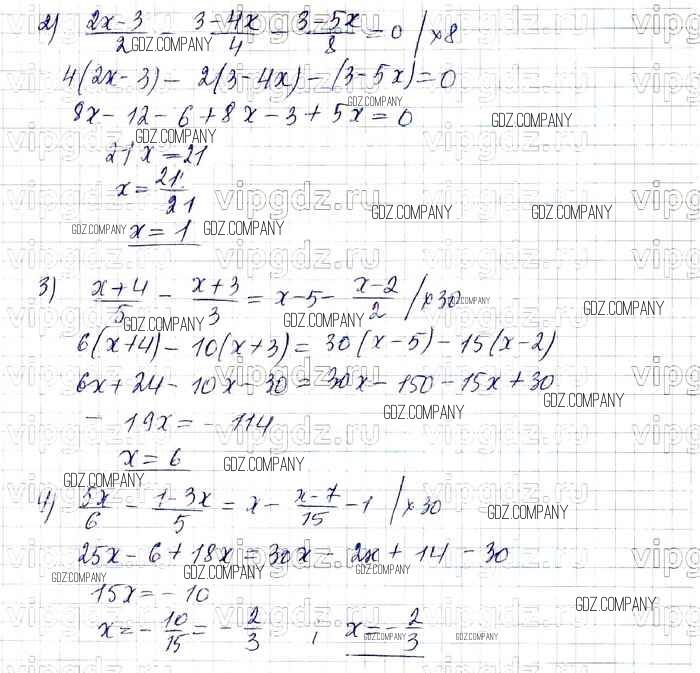 2) (2x-3)/2 - (3-4x)/4 - (3-5x)/8 = 0 / x8
4(2x-3) - 2(3-4x) - (3-5x) = 0
8x - 12 - 6 + 8x - 3 + 5x = 0
21x = 21
x = 21/21
x = 1
3) (x+4)/5 - (x+3)/3 = x-5 - (x-2)/2 / x30
6(x+4) - 10(x+3) = 30(x-5) - 15(x-2)
6x + 24 - 10x - 30 = 30x - 150 - 15x + 30
- 19x = - 114
x = 6
4) 5x/6 - (1-3x)/5 = x - (x-7)/15 - 1 / x30
25x - 6 + 18x = 30x - 2x + 14 - 30
15x = - 10
x = - 10/15 = - 2/3 ; x = - 2/3
GDZ.COMPANY
vipgdz.ru